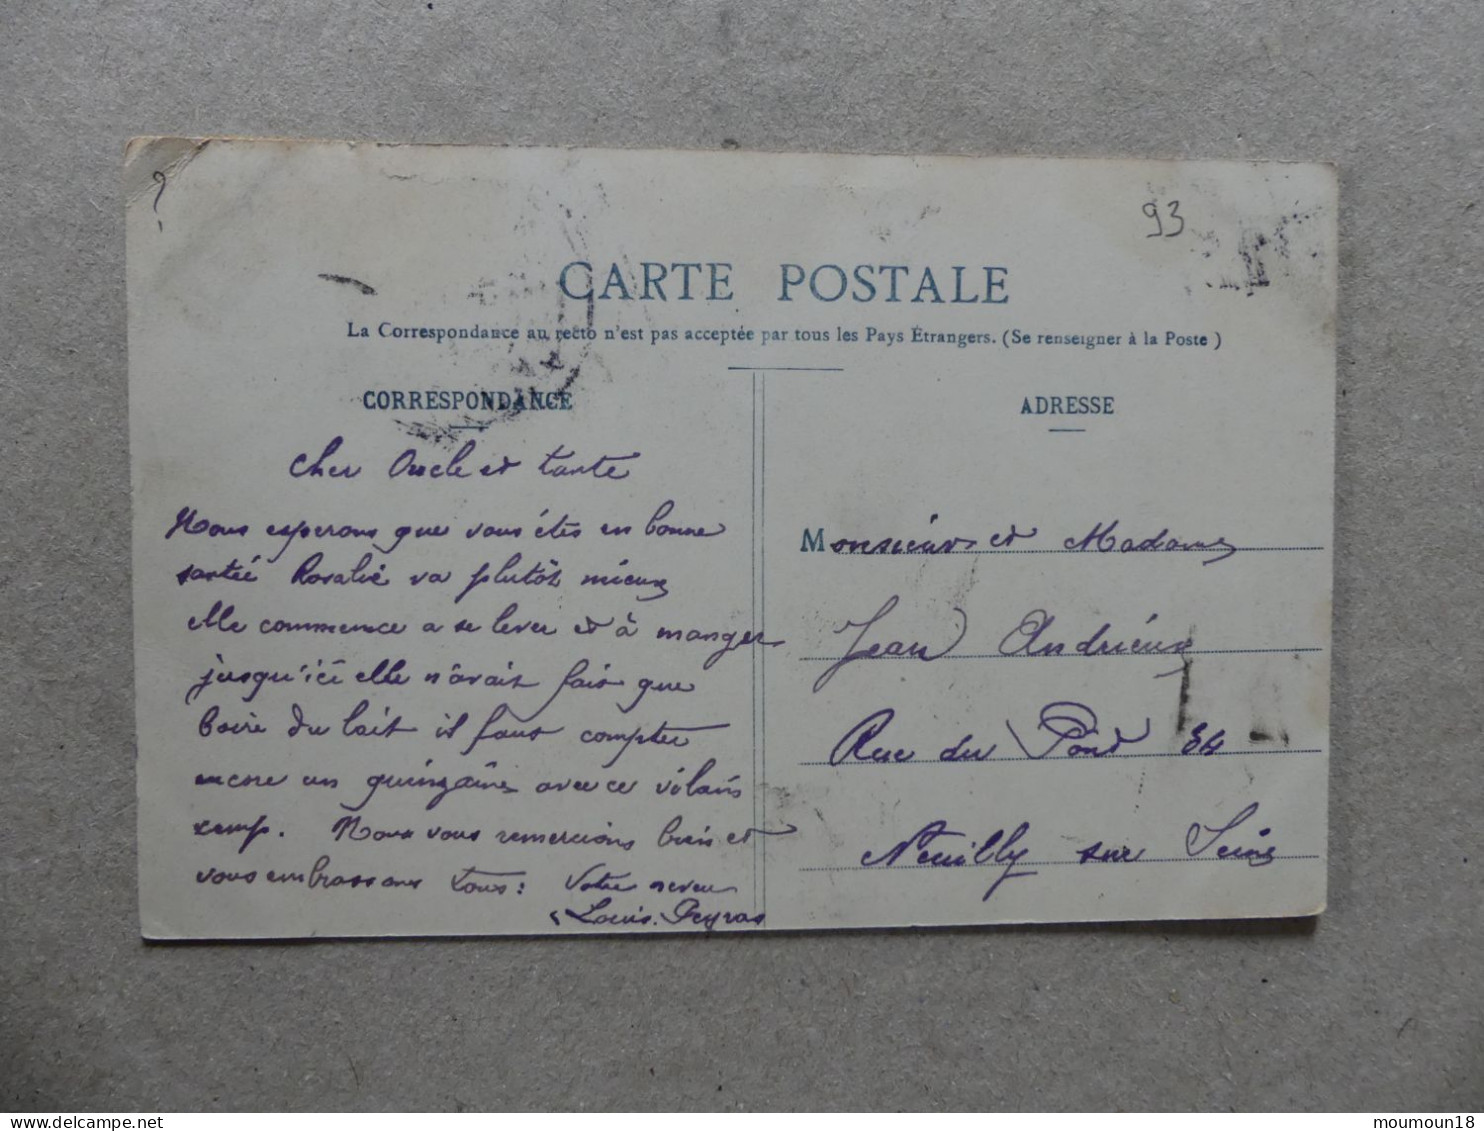 ?
93
CARTE POSTALE
La Correspondance au recto n'est pas acceptée par tous les Pays Étrangers. (Se renseigner à la Poste)
CORRESPONDANCE
Cher Oncle et tante
Nous esperons que vous étés en bonne
santée Rosalie va plutôt mieux
elle commence a se lever et à manger
jusqu'ici elle n'avait fait que
boire du lait il faut compter
encore un quinzaine avec ce vilain
temp. Nous vous remercions bien et
vous embrassons tous: Votre neveu
Louis. Peyras
ADRESSE
Monsieur et Madame
Jean Andrieux
Rue du Pont 34
Neuilly sur Seine
www.delcampe.net
moumoun18